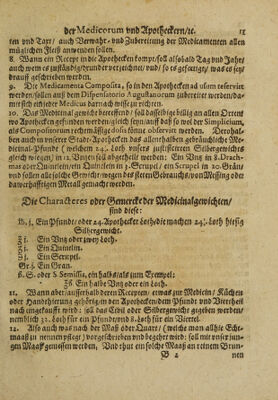 der Medicorum vnd Apotheckern/ꝛc. 11
ren vnd Taxt/ auch Verwahr- vnd Zubereitung der Medicamenten allen
müglichen Fleiß anwenden sollen.
8. Wann ein Recept in die Apothecken kompt/soll alsobald Tag vnd Jahr/
auch wem es zuständig/vnder verzeichnet/vnd/ so es gefertiget/ was es sey/
drauff geschrieben werden.
9. Die Medicamenta Composita, so in den Apothecken ad usum reservirt
werden/ sollen auß dem Dispensatorio Augustanorum zubereitet werden/da-
mit sich ein jeder Medicus darnach wisse zu richten.
10. Das Medicinal gewicht betreffend/ soll dasselbige billig an allen Orten
wo Apothecken gleich vnd vnfehlbar seyn/ damit also so wol der Simplicium,
als Compositorum rechtmässige dosis könne observirt werden. Derohal-
ben auch in vnserer Stadt-Apothecken das allenthalben gebräuchliche Me-
dicinal-Pfundt ( welchem 24. Loth vnsers justificirten Silbergewichts
gleich wiegen/ in 12. Vntzen soll abgetheilt werden: Ein Vntz in 8. Drach-
mas oder Quintlein/ein Quintlein in 3. Scrupel/ ein Scrupel in 20. Grän/
vnd sollen alle solche Gewichte wegen deß steten Gebrauchs/von Messing oder
dawerhafftigem Metall gemacht werden.
Die Characteres oder Gemercke der Medicinalgewichten/
sind diese:
℔. j. Ein Pfundt/ oder 24. Apothecker Loth/die machen 24. Loth hiesig
Silbergewicht.
℥ j. Ein Vntz oder zwey Loth.
ʒ j. Ein Quintlin.
℈ j. Ein Scrupel.
Gr. j. Ein Gran.
ß. S. oder S Semissis, ein halb/als zum Exempel:
℥ ß. Ein halb Vntz/ oder ein Loth.
11. Wann aber/ausserhalb deren Recepten/ etwas zur Medicin/ Küchen
oder Handthierung gehörig/in den Apothecken/dem Pfundt vnd Viertheil
nach eingekaufft wird: soll das Civil oder Silbergewicht gegeben werden/
nemblich 32. Loth für ein Pfundt/vnd 8. Loth für ein Viertel.
12. Also auch was nach der Maß oder Quart/ (welche man allhie Echt-
maß zu nennen pflegt) verkaufft wird: soll mit vnser jun-
gen Maß gemessen werden, Vnd thut ein solche Maß an reinem Brun-
B 2 nen